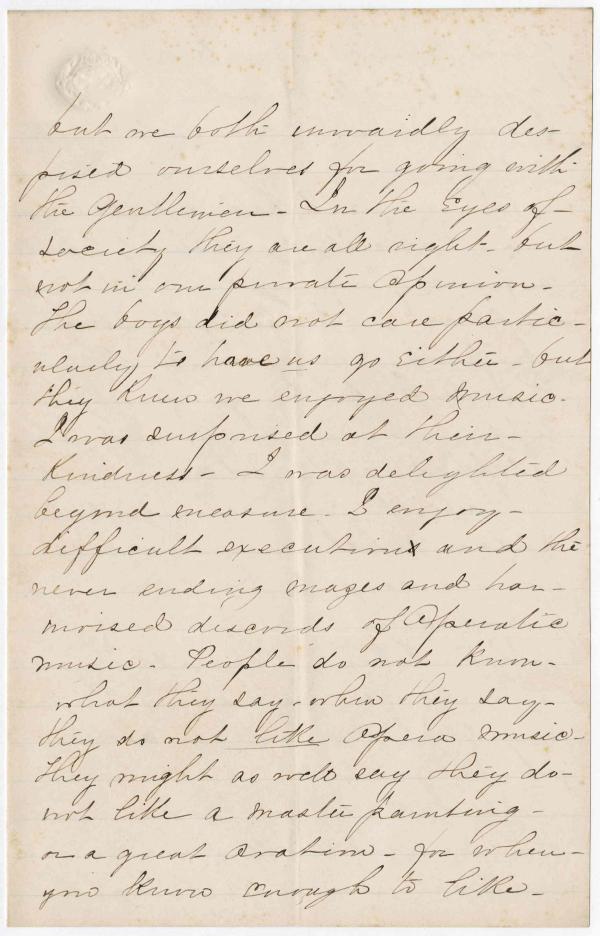 but we both inwardly des-
pised ourselves for going with
the Gentlemen - In the Eyes of
society they are all right - but
not in our private Opinion -
The boys did not care partic-
ularly to have us go either - but
they knew we enjoyed music -
I was surprised at their
Kindness - I was delighted
beyond measure - I enjoy
difficult execution and the
never ending mazes and har-
monised discords of Operatic
music - People do not know
what they say - when they say
they do not like Opera music -
They might as well say they do
not like a master painting -
or a great Oration - for when
you know enough to like -